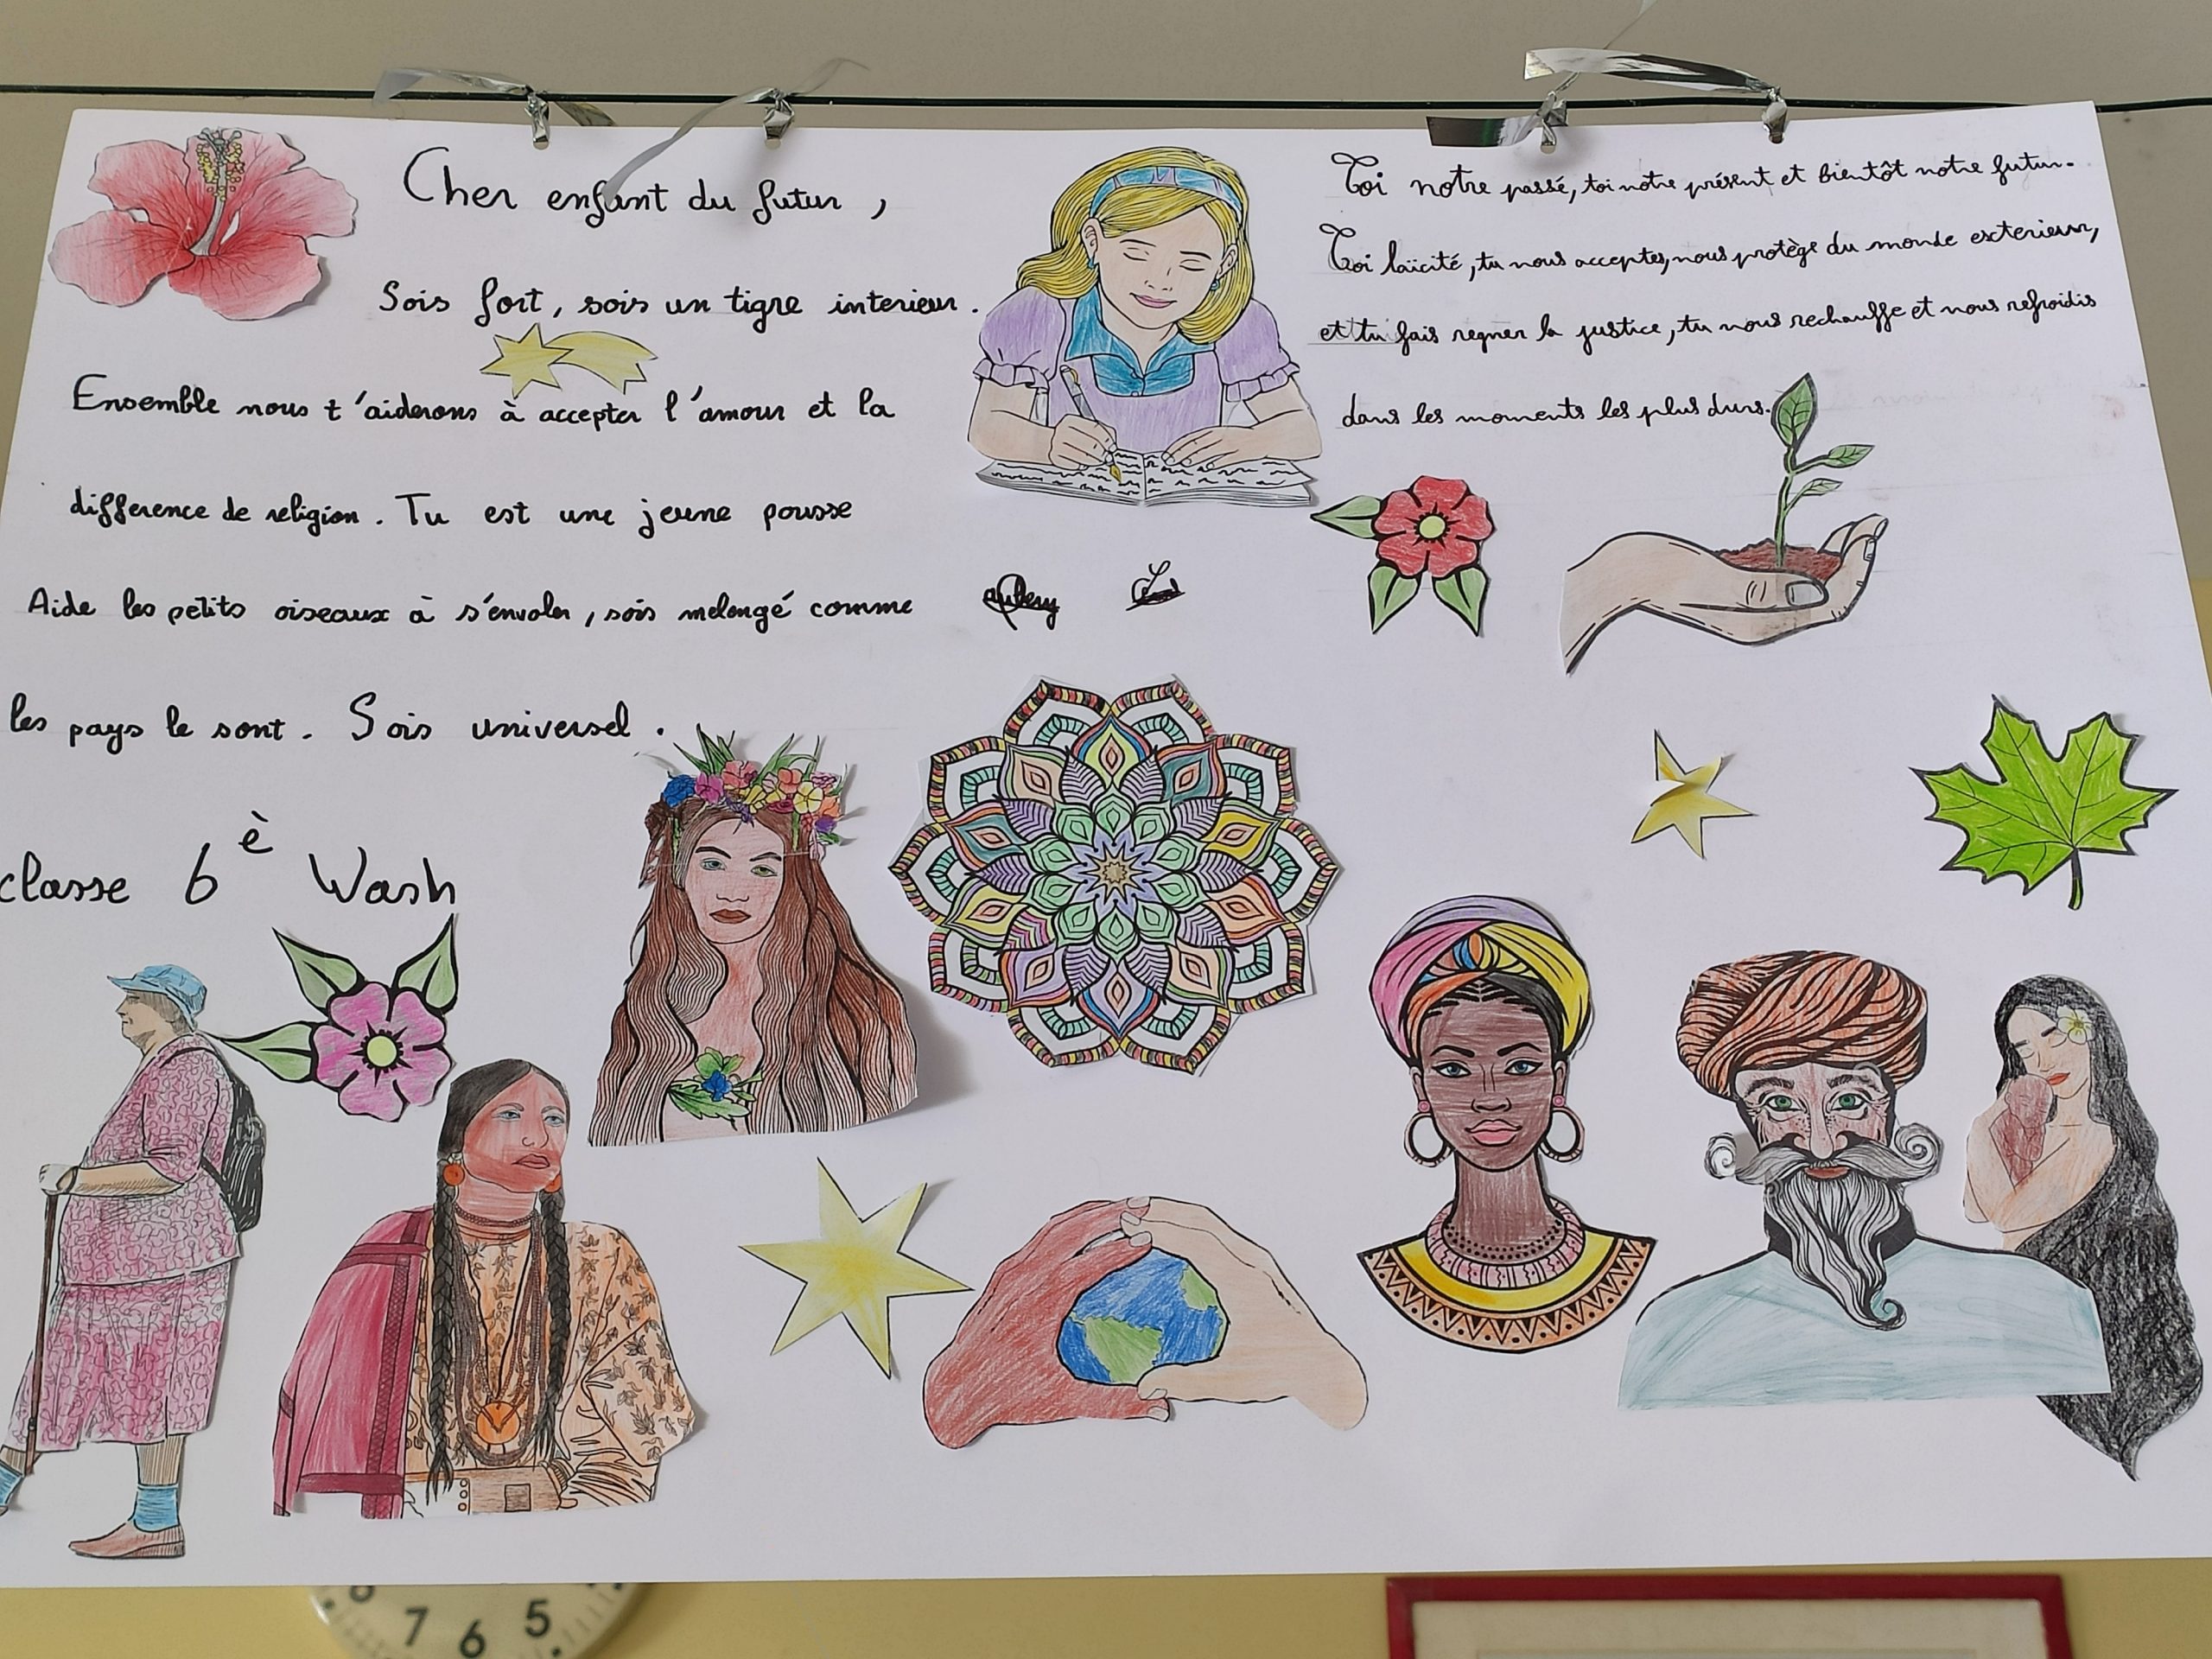 Cher enfant du futur,
Sois fort, sois un tigre interieur.
Ensemble nous t'aiderons à accepter l'amour et la
difference de religion. Tu est une jeune pousse
Aide les petits oiseaux à s'envoler, sois melangé comme
les pays le sont. Sois universel.
classe 6è Wash
Toi notre passé, toi notre présent et bientôt notre futur.
Toi laïcité, tu nous acceptes, nous protège du monde exterieur,
et tu fais regner la justice, tu nous rechauffe et nous refroidis
dans les moments les plus durs.
7 6 5